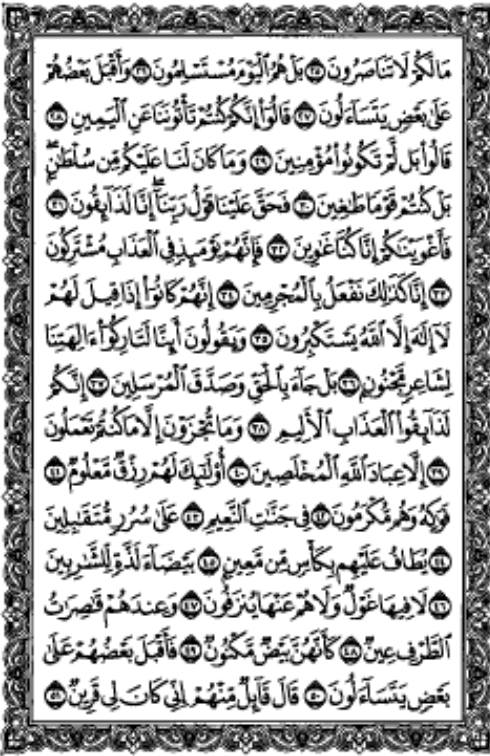 مَا لَكُمْ لَا تَنَاصَرُونَ ٢٥ بَلْ هُمُ ٱلْيَوْمَ مُسْتَسْلِمُونَ ٢٦ وَأَقْبَلَ بَعْضُهُمْ
عَلَىٰ بَعْضٍ يَتَسَآءَلُونَ ٢٧ قَالُوٓا۟ إِنَّكُمْ كُنتُمْ تَأْتُونَنَا عَنِ ٱلْيَمِينِ ٢٨
قَالُوا۟ بَل لَّمْ تَكُونُوا۟ مُؤْمِنِينَ ٢٩ وَمَا كَانَ لَنَا عَلَيْكُم مِّن سُلْطَٰنٍۭ ۖ
بَلْ كُنتُمْ قَوْمًا طَٰغِينَ ٣٠ فَحَقَّ عَلَيْنَا قَوْلُ رَبِّنَآ ۖ إِنَّا لَذَآئِقُونَ ٣١
فَأَغْوَيْنَٰكُمْ إِنَّا كُنَّا غَٰوِينَ ٣٢ فَإِنَّهُمْ يَوْمَئِذٍ فِى ٱلْعَذَابِ مُشْتَرِكُونَ
٣٣ إِنَّا كَذَٰلِكَ نَفْعَلُ بِٱلْمُجْرِمِينَ ٣٤ إِنَّهُمْ كَانُوٓا۟ إِذَا قِيلَ لَهُمْ
لَآ إِلَٰهَ إِلَّا ٱللَّهُ يَسْتَكْبِرُونَ ٣٥ وَيَقُولُونَ أَئِنَّا لَتَارِكُوٓا۟ ءَالِهَتِنَا
لِشَاعِرٍ مَّجْنُونٍۭ ٣٦ بَلْ جَآءَ بِٱلْحَقِّ وَصَدَّقَ ٱلْمُرْسَلِينَ ٣٧ إِنَّكُمْ
لَذَآئِقُوا۟ ٱلْعَذَابِ ٱلْأَلِيمِ ٣٨ وَمَا تُجْزَوْنَ إِلَّا مَا كُنتُمْ تَعْمَلُونَ
٣٩ إِلَّا عِبَادَ ٱللَّهِ ٱلْمُخْلَصِينَ ٤٠ أُو۟لَٰٓئِكَ لَهُمْ رِزْقٌ مَّعْلُومٌ ٤١
فَوَٰكِهُ ۖ وَهُم مُّكْرَمُونَ ٤٢ فِى جَنَّٰتِ ٱلنَّعِيمِ ٤٣ عَلَىٰ سُرُرٍ مُّتَقَٰبِلِينَ
٤٤ يُطَافُ عَلَيْهِم بِكَأْسٍ مِّن مَّعِينٍۭ ٤٥ بَيْضَآءَ لَذَّةٍ لِّلشَّٰرِبِينَ
٤٦ لَا فِيهَا غَوْلٌ وَلَا هُمْ عَنْهَا يُنزَفُونَ ٤٧ وَعِندَهُمْ قَٰصِرَٰتُ
ٱلطَّرْفِ عِينٌ ٤٨ كَأَنَّهُنَّ بَيْضٌ مَّكْنُونٌ ٤٩ فَأَقْبَلَ بَعْضُهُمْ عَلَىٰ
بَعْضٍ يَتَسَآءَلُونَ ٥٠ قَالَ قَآئِلٌ مِّنْهُمْ إِنِّى كَانَ لِى قَرِينٌ ٥١